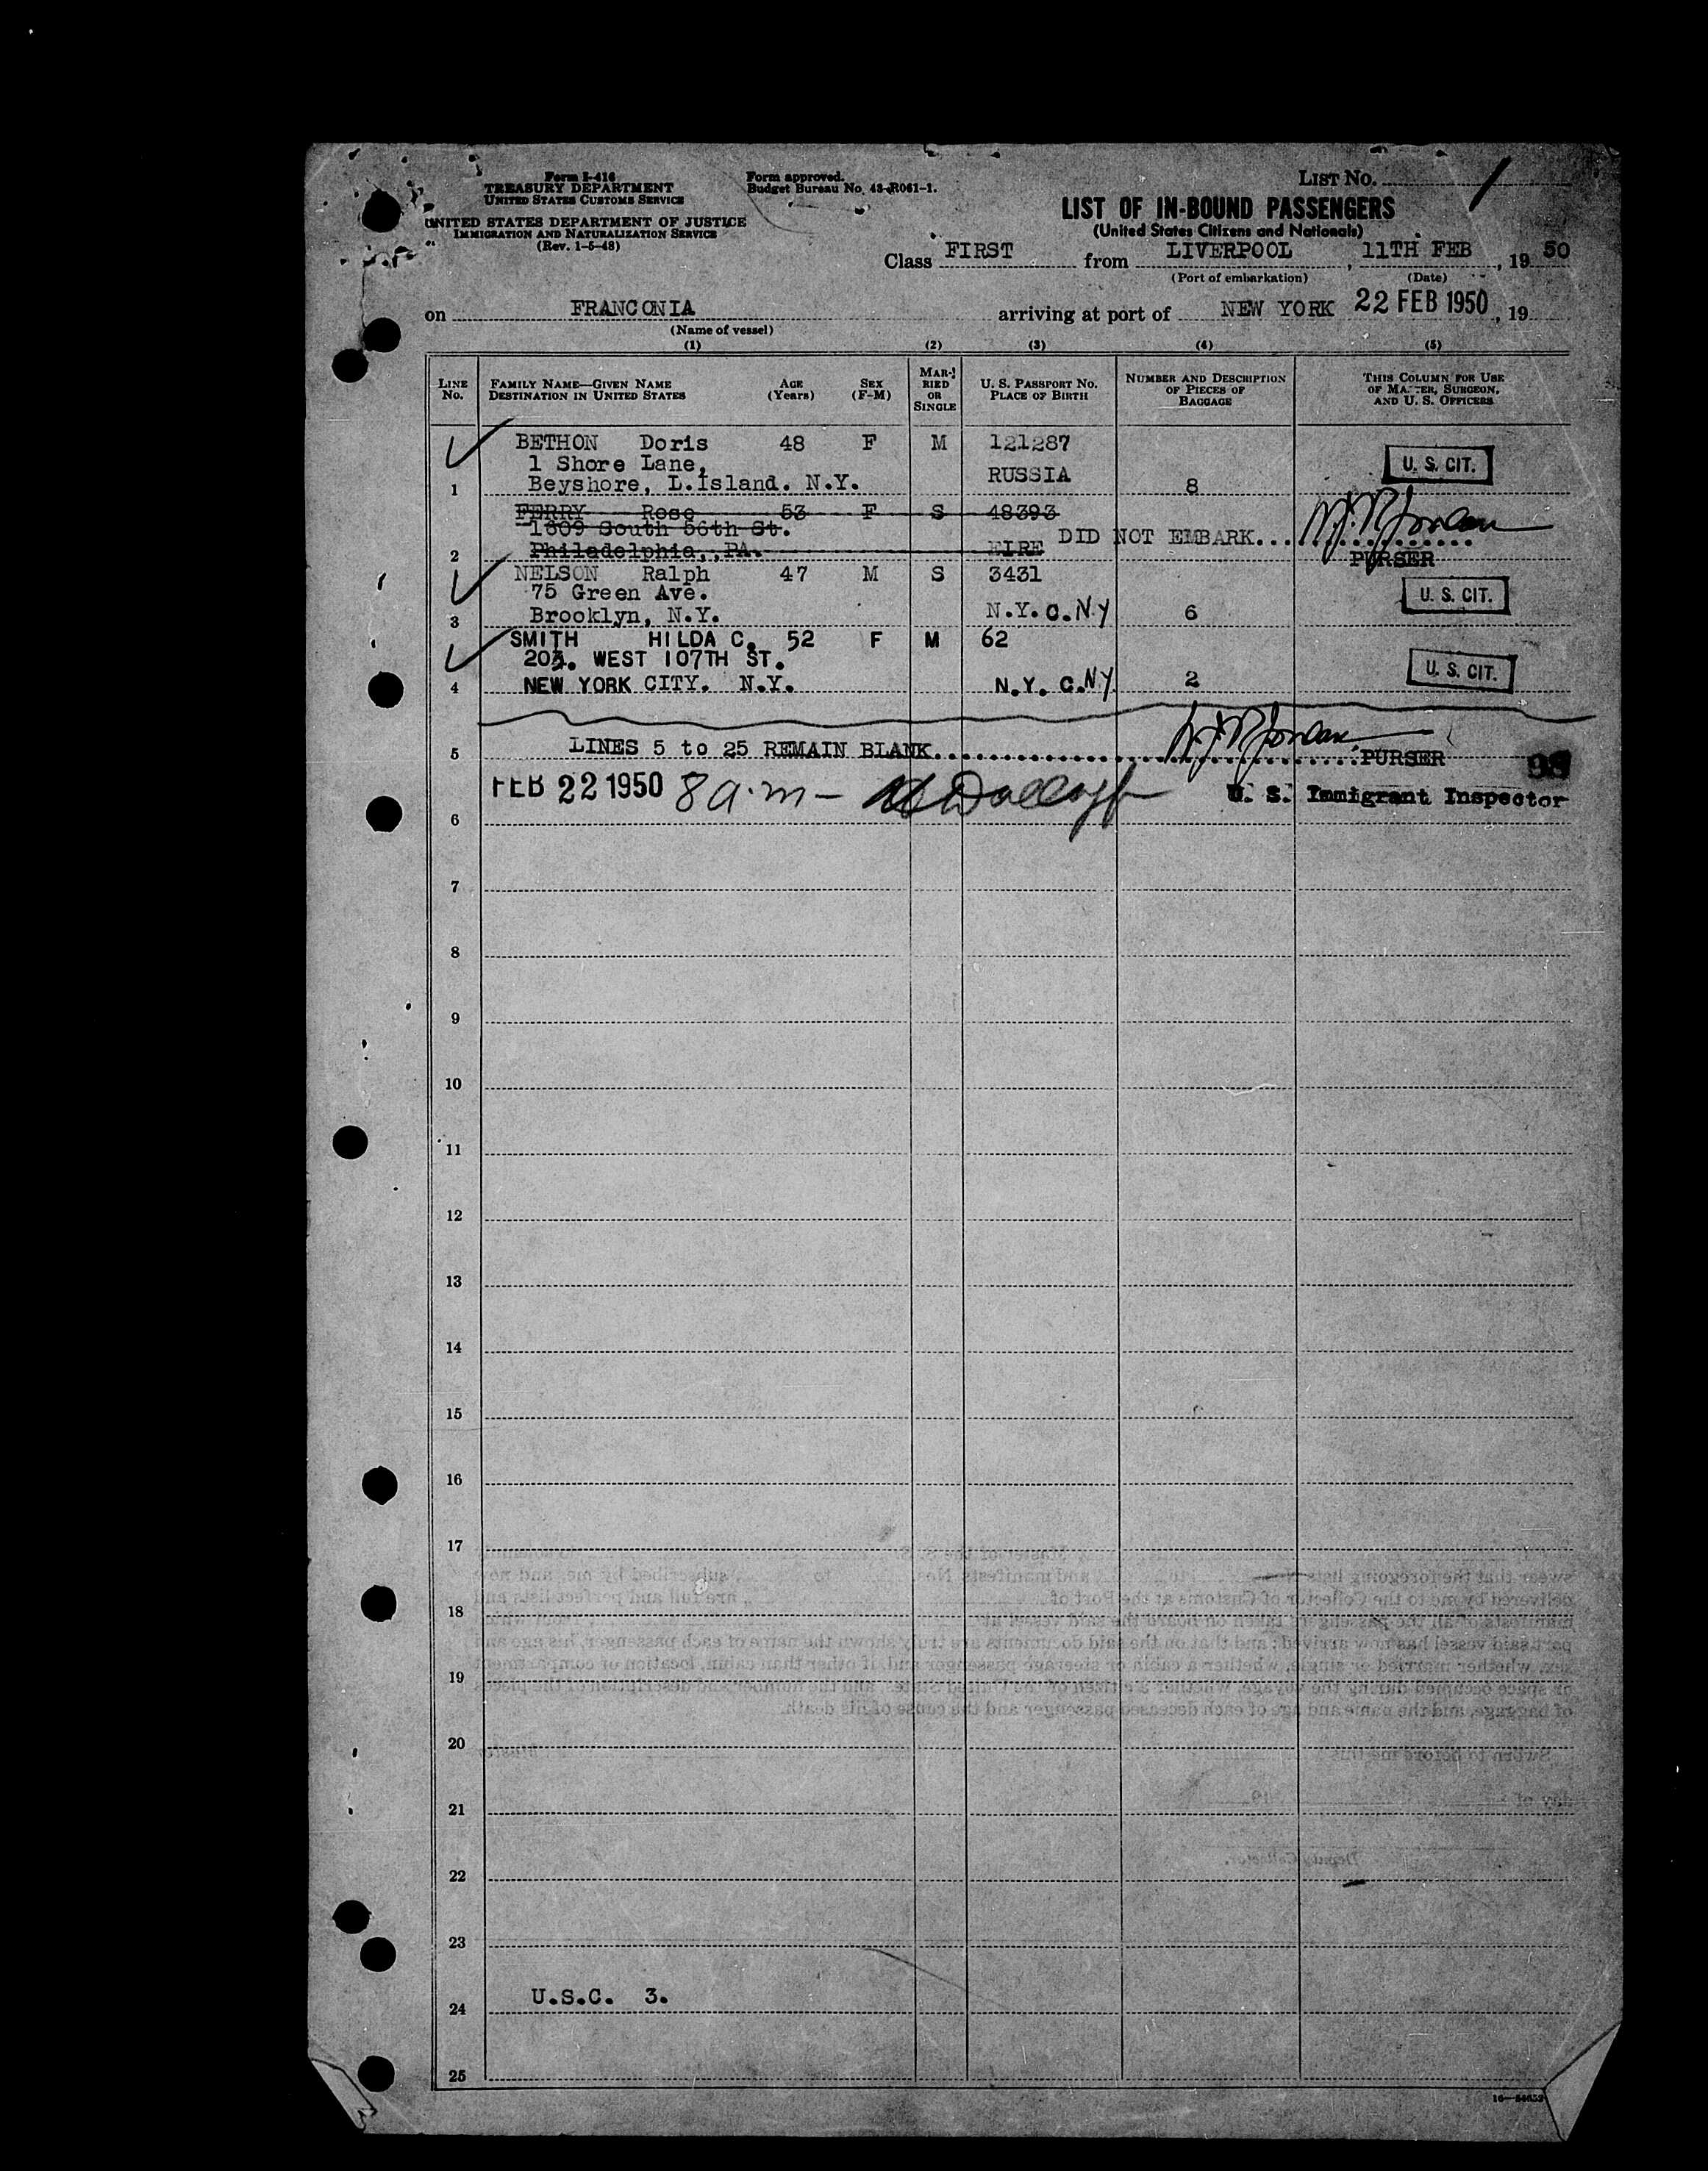 Form I-416
TREASURY DEPARTMENT
UNITED STATES CUSTOMS SERVICE
UNITED STATES DEPARTMENT OF JUSTICE
IMMIGRATION AND NATURALIZATION SERVICE
(Rev. 1-5-48)
Form approved.
Budget Bureau No. 43-R061-1.
LIST NO. 1
LIST OF IN-BOUND PASSENGERS
(United States Citizens and Nationals)
Class FIRST from LIVERPOOL, 11TH FEB, 19 50
(Port of embarkation) (Date)
on FRANCONIA arriving at port of NEW YORK 22 FEB 1950, 19
(Name of vessel)
(1) (2) (3) (4) (5)
LINE No. FAMILY NAME—GIVEN NAME DESTINATION IN UNITED STATES AGE (Years) SEX (F-M) MARRIED OR SINGLE U. S. PASSPORT NO. PLACE OF BIRTH NUMBER AND DESCRIPTION OF PIECES OF BAGGAGE THIS COLUMN FOR USE OF MASTER, SURGEON, AND U. S. OFFICERS
BETHON Doris 48 F M 121287
1 Shore Lane, RUSSIA U. S. CIT.
1 Beyshore, L.Island. N.Y. 8
FERRY Rose 53 F S 48393
1609 South 56th St. DID NOT EMBARK....
2 Philadelphia,,PA. EIRE PURSER
NELSON Ralph 47 M S 3431
75 Green Ave. U. S. CIT.
3 Brooklyn, N.Y. N.Y.C.NY 6
SMITH HILDA C. 52 F M 62
WEST 107TH ST. U. S. CIT.
4 NEW YORK CITY. N.Y. N.Y. C.NY 2
5 LINES 5 to 25 REMAIN BLANK.... PURSER
FEB 22 1950 8 a.m — U. S. Immigrant Inspector
6
7
8
9
10
11
12
13
14
15
16
17
18
19
20
21
22
23
24 U.S.C. 3.
25